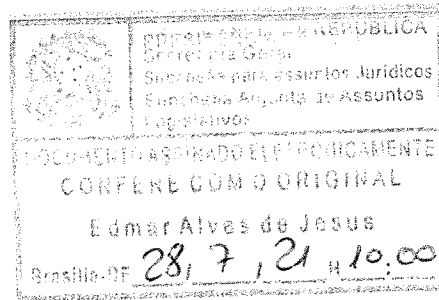 PRESIDÊNCIA DA REPÚBLICA
Secretaria Geral
Subchefia para Assuntos Jurídicos
Subchefia Adjunta de Assuntos
Legislativos
DOCUMENTO ASSINADO ELETRONICAMENTE
CONFERE COM O ORIGINAL
Edmar Alves de Jesus
Brasília-DF 28, 7, 21 H 10:00